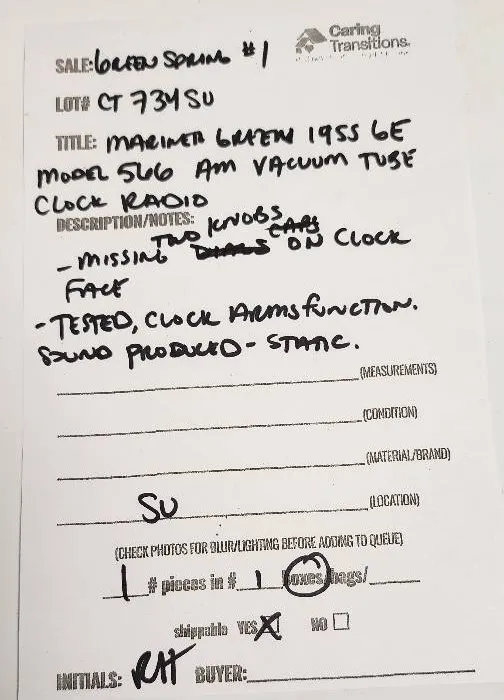 Caring
Transitions.
SALE: GREEN SPRING #1
LOT# CT 734 SU
TITLE: MARINER GREEN 1955 GE
MODEL 566 AM VACUUM TUBE
CLOCK RADIO
DESCRIPTION/NOTES:
- MISSING TWO KNOBS ON CLOCK
FACE
- TESTED, CLOCK ARMS FUNCTION.
SOUND PRODUCED - STATIC.
(MEASUREMENTS)
(CONDITION)
(MATERIAL/BRAND)
SU (LOCATION)
(CHECK PHOTOS FOR BLUR/LIGHTING BEFORE ADDING TO QUEUE)
1 # pieces in # 1 boxes/bags/
shippable YES X NO
INITIALS: RH BUYER: